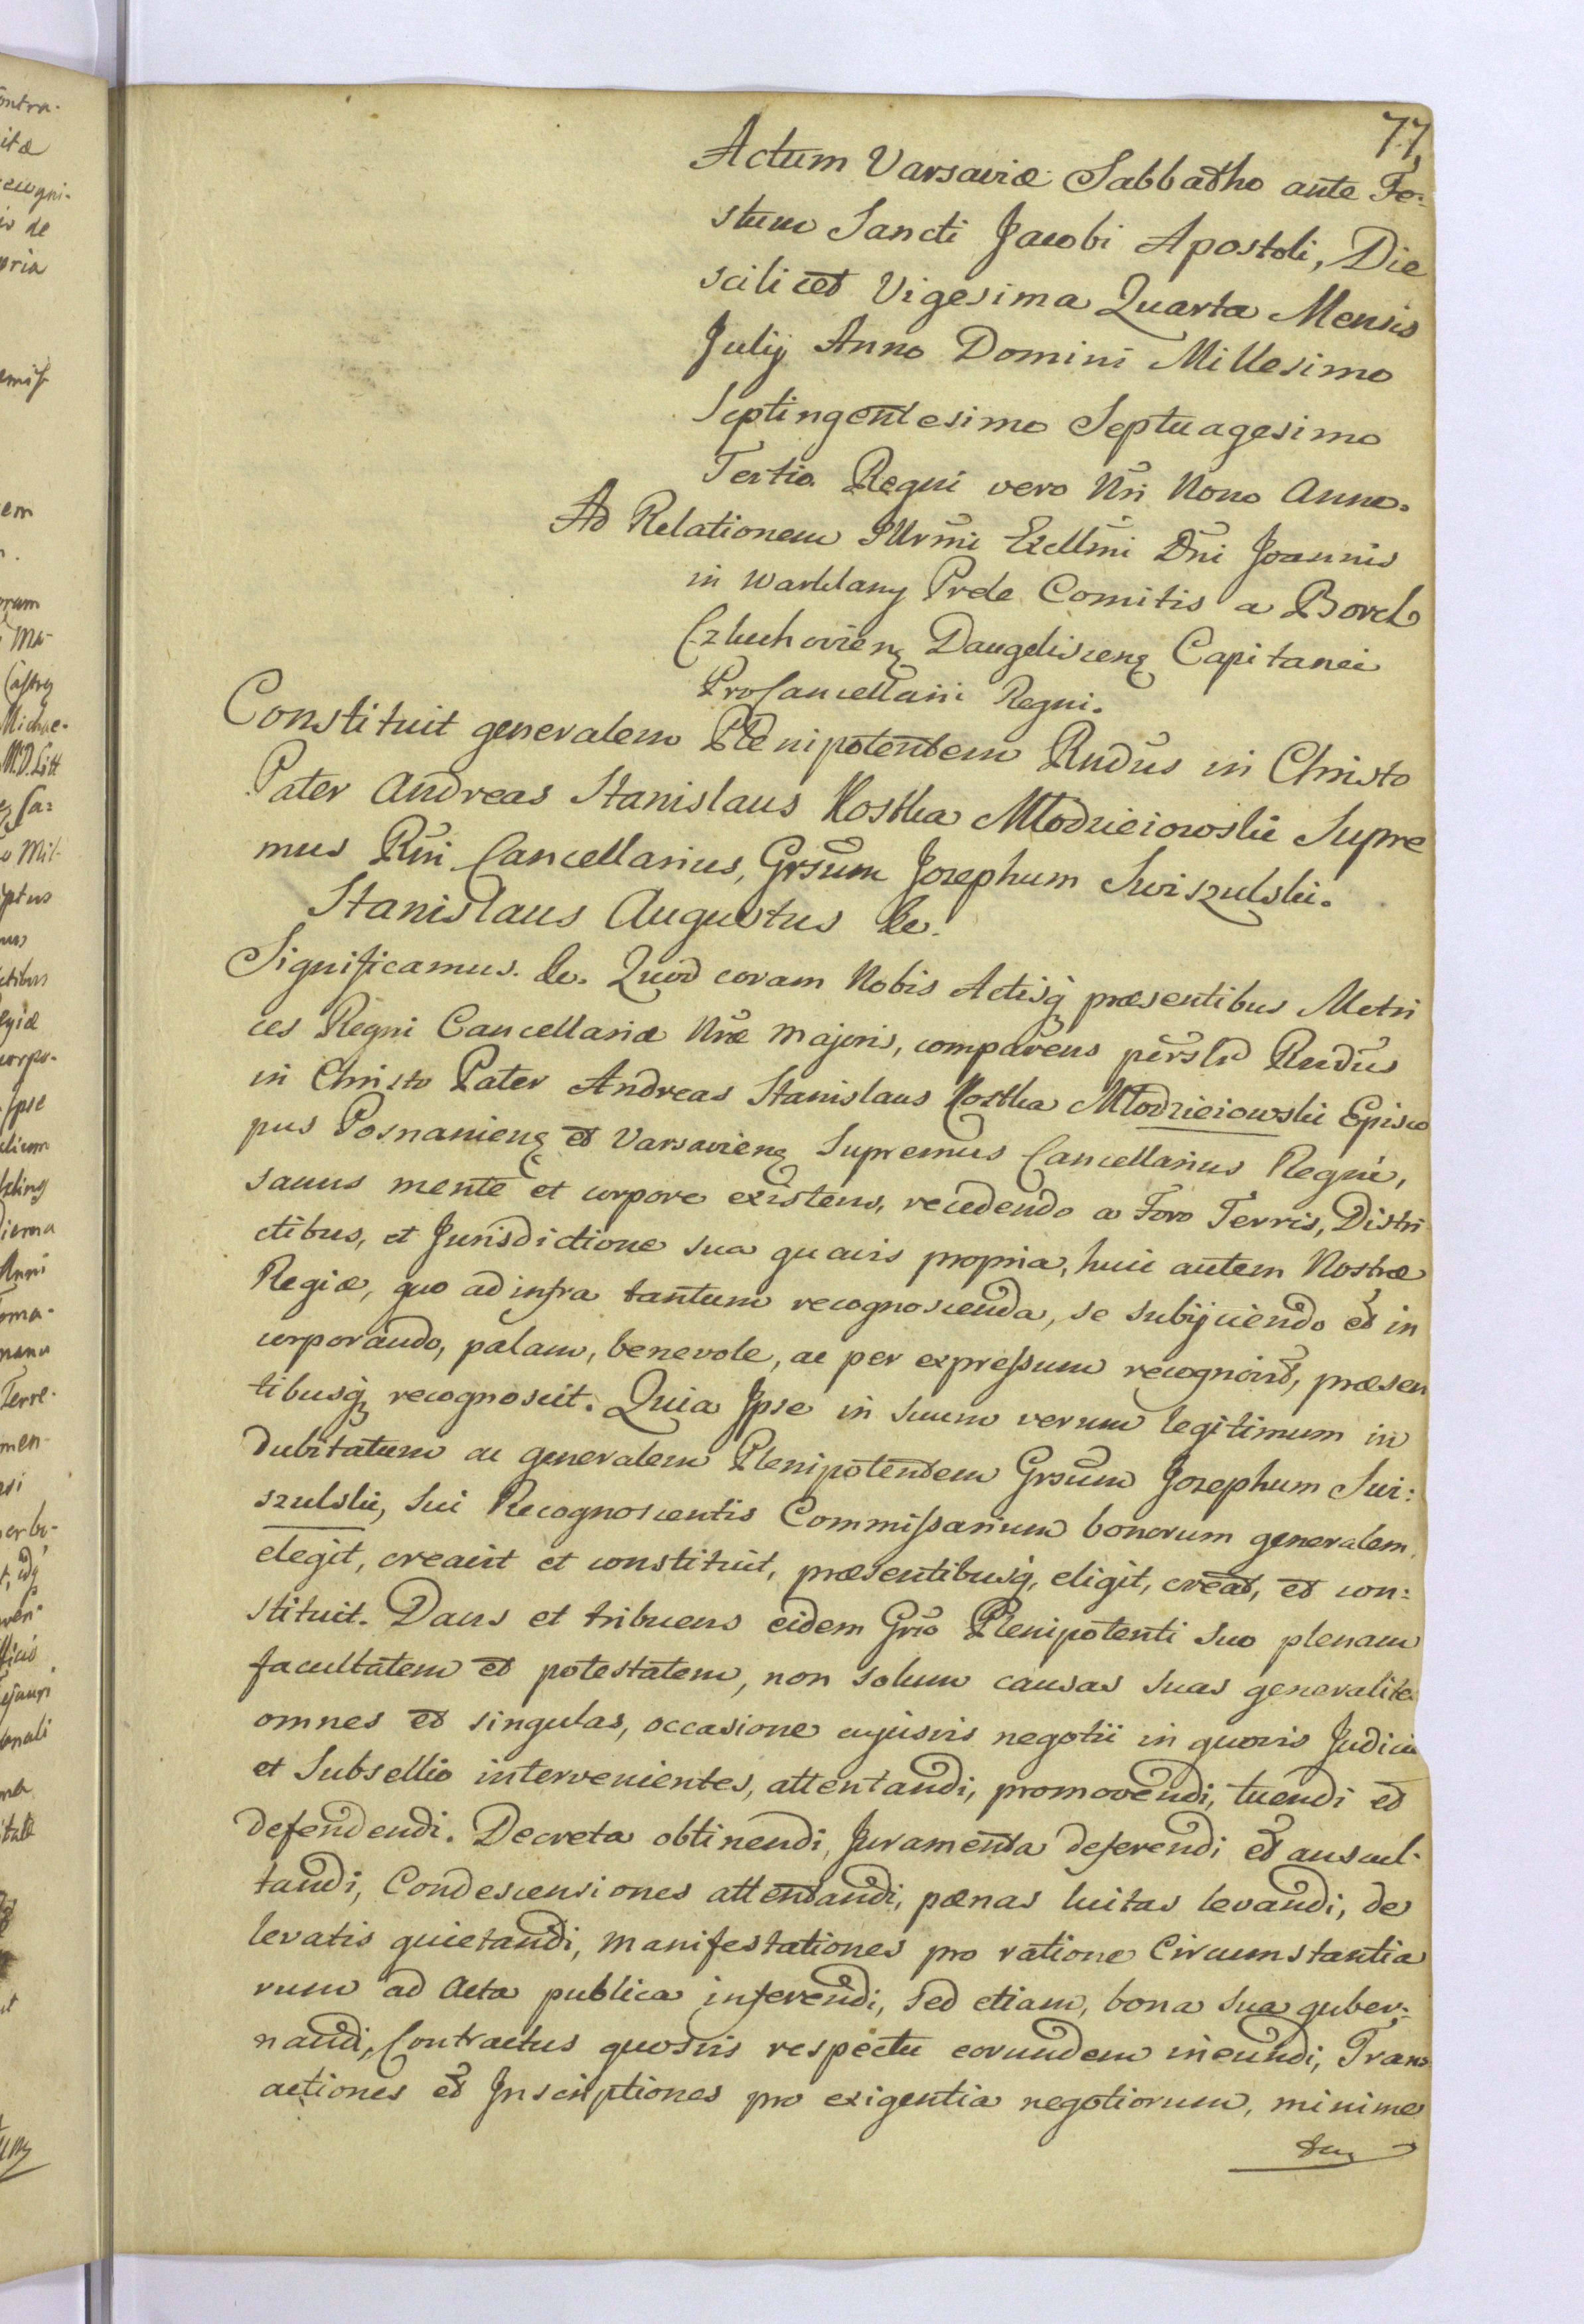 77
Actum Varsaviæ Sabbatho ante Fe:
stum Sancti Jacobi Apostoli, Die
scilicet Vigesima Quarta Mensis
Julij Anno Domini Millesimo
Septingentesimo Septuagesimo
Tertio. Regni vero Nri Nono Anno.
Ad Relationem Illrmi Excllmi Dni Joannis
in Warklany Prele Comitis a Borch
Czluchovienę Daugeliscenę Capitanei
ProCancellarii Regni.
Constituit generalem Plenipotentem Rndus in Christo
Pater Andreas Stanislaus Kostka Młodzieiowski Supre
mus Rni Cancellarius, Grsum Josephum Swiszulski.
Stanislaus Augustus &c.
Significamus. &c. Quod coram Nobis Actisq̨ præsentibus Metri
ces Regni Cancellariæ Nræ Majoris, comparens persłr Rndus
in Christo Pater Andreas Stanislaus Kostka Młodzieiowski Episco
pus Posnanienę et Varsavienę Supremus Cancellarius Regni,
sanus mente et corpore existens, recedendo a Foro Terris, Distri
ctibus, et Jurisdictione sua quavis propria, huic autem Nostræ
Regiæ, quo ad infra tantum recognoscenda, se subijciendo et in
corporando, palam, benevole, ac per expressum recognovit, præsen
tibusq̨ recognoscit. Quia Ipse in suum verum legitimum in
dubitatum ac generalem Plenipotentem Grsum Josephum Swi:
szulski, sui Recognoscentis Commissarium bonorum generalem
elegit, creavit et constituit, præsentibusq̨, eligit, creat, et con:
stituit. Dans et tribuens eidem Grso Plenipotenti suo plenam
facultatem et potestatem, non solum causas suas generalite
omnes et singulas, occasione cujusvis negotii in quovis Judicio
et Subsellio intervenientes, attentandi, promovendi, tuendi et
defendendi. Decreta obtinendi, Juramenta deferendi et auscul-
tandi, Condescensiones attentandi, pænas luitas levandi, de
levatis quietandi, manifestationes pro ratione Circumstantia
rum ad Acta publica inferendi, sed etiam, bona sua guber:
nandi, Contractus quosvis respectu eorundem ineundi, Trans
actiones et Inscriptiones pro exigentia negotiorum, minime